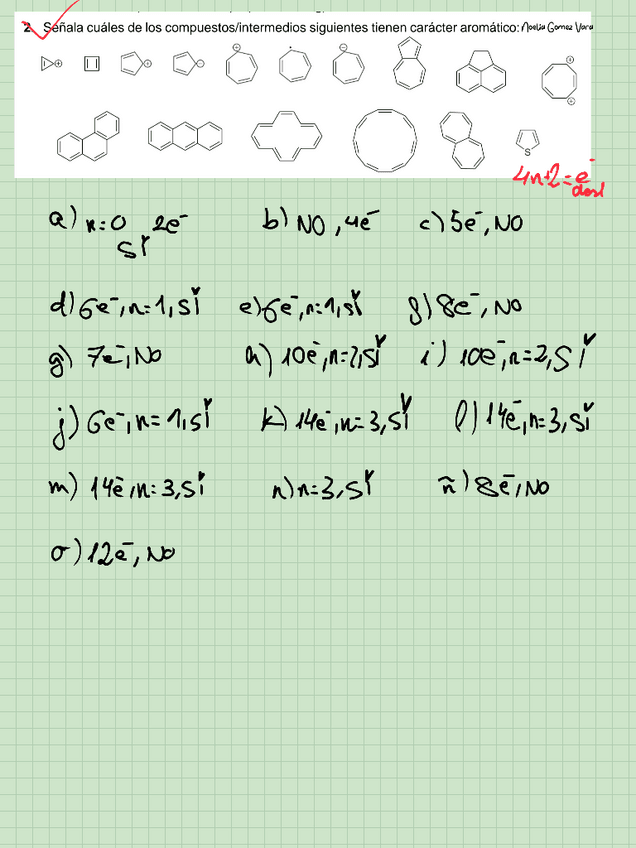 2. Señala cuáles de los compuestos/intermedios siguientes tienen carácter aromático: Noelia Gomez Vara
S
4n+2 = e⁻
desl
a) n=0 2e⁻ b) NO, 4e⁻ c) 5e⁻, NO
SÍ
d) 6e⁻, n=1, SÍ e) 6e⁻, n=1, SÍ g) 8e⁻, NO
g) 7e⁻, NO h) 10e⁻, n=2, SÍ i) 10e⁻, n=2, SÍ
j) 6e⁻, n=1, SÍ k) 14e⁻, n=3, SÍ l) 14e⁻, n=3, SÍ
m) 14e⁻, n=3, SÍ n) n=3, SÍ ñ) 8e⁻, NO
o) 12e⁻, NO